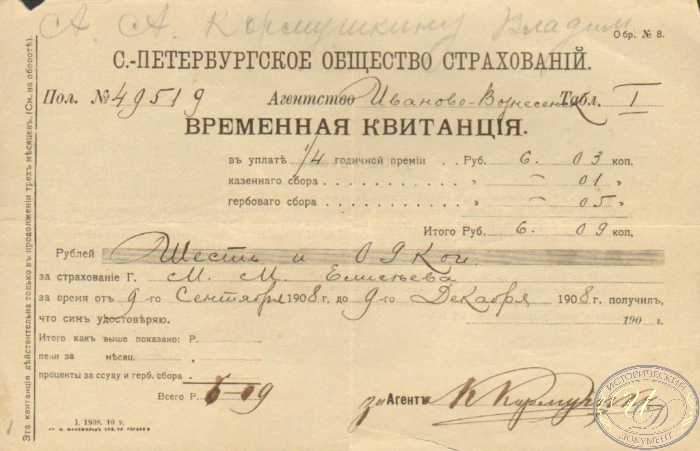 А. А. Кормушкину Владим
Обр. № 8.
С.-ПЕТЕРБУРГСКОЕ ОБЩЕСТВО СТРАХОВАНІЙ.
Пол. № 49519 Агентство Иваново-Вознесенск Табл. I
ВРЕМЕННАЯ КВИТАНЦІЯ.
въ уплатѣ 1/4 годичной преміи . . Руб. 6. 03 коп.
казеннаго сбора . . . . . . . . . . . „ — 01 „
гербоваго сбора . . . . . . . . . . . „ — 05 „
Итого Руб. 6. 09 коп.
Рублей Шесть и 09 коп
за страхованіе Г. М. М. Елисѣева
за время отъ 9-го Сентября 1908 г. до 9-го Декабря 1908 г. получилъ,
что симъ удостовѣряю. 190 г.
Итого какъ выше показано: Р.
пени за мѣсяц. „
проценты за ссуду и герб. сбора „
Всего Р. 6 09
за Агентъ К Кормушкин
I. 1908. 10 т.
Эта квитанція дѣйствительна только въ продолженіи трехъ мѣсяцевъ. (См. на оборотѣ).
ИСТОРИЧЕСКИЙ
ДОКУМЕНТ